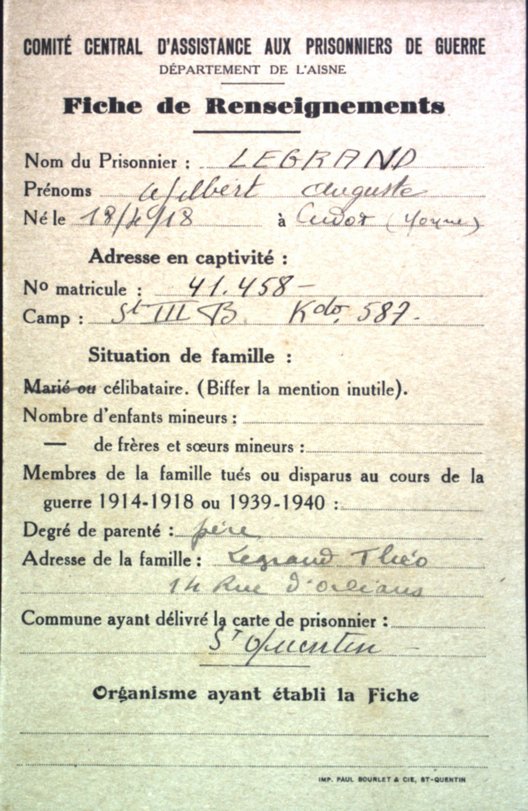 COMITÉ CENTRAL D'ASSISTANCE AUX PRISONNIERS DE GUERRE
DÉPARTEMENT DE L'AISNE
Fiche de Renseignements
Nom du Prisonnier : LEGRAND
Prénoms Wilbert Auguste
Né le 18/4/18 à Cudot (Yonne)
Adresse en captivité :
No matricule : 41.458 -
Camp : St III B. Kdo. 587.
Situation de famille :
Marié ou célibataire. (Biffer la mention inutile).
Nombre d'enfants mineurs :
— de frères et sœurs mineurs :
Membres de la famille tués ou disparus au cours de la
guerre 1914-1918 ou 1939-1940 :
Degré de parenté : père
Adresse de la famille : Legrand Théo
14 Rue d'Orléans
Commune ayant délivré la carte de prisonnier :
St Quentin
Organisme ayant établi la Fiche
IMP. PAUL BOURLET & CIE, ST-QUENTIN